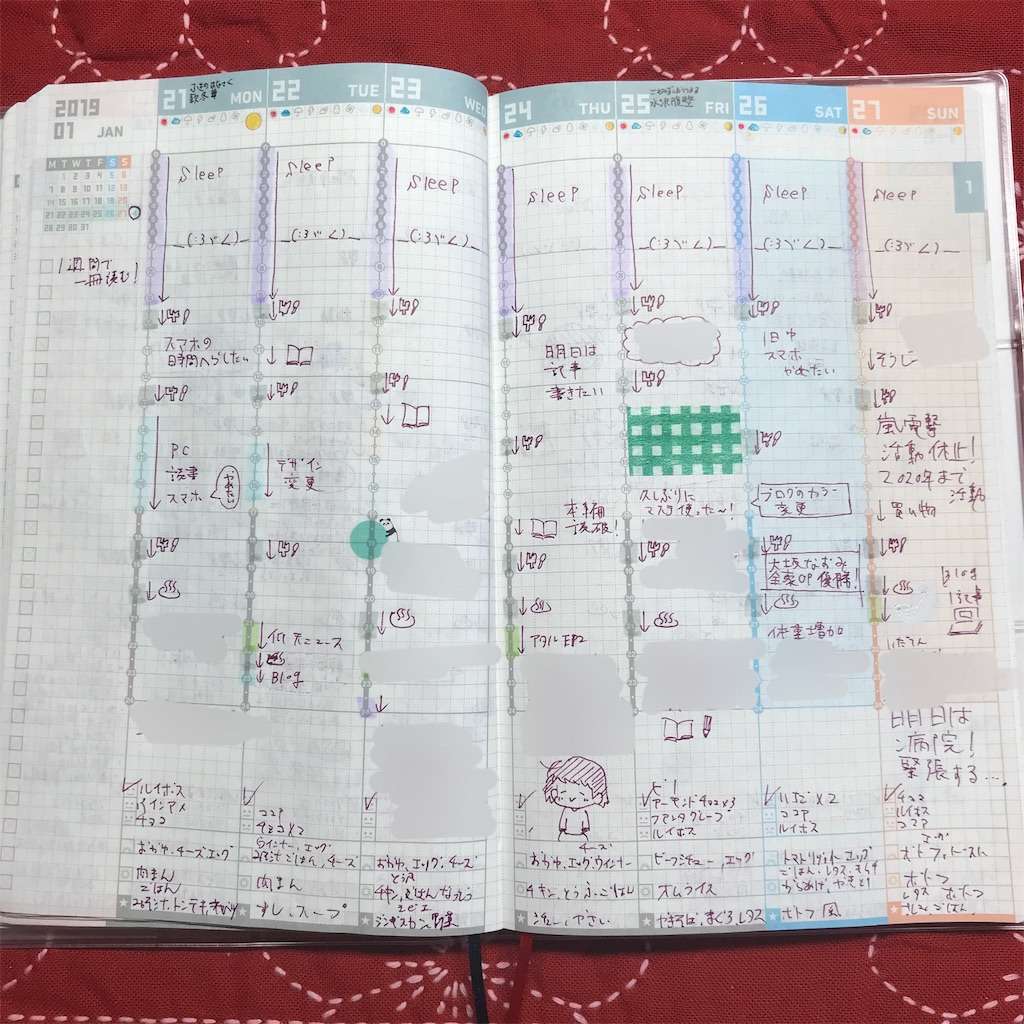 2019
01 JAN
M T W T F S S
1 2 3 4 5 6
7 8 9 10 11 12 13
14 15 16 17 18 19 20
21 22 23 24 25 26 27
28 29 30 31
1週間で
一冊読む!
21 MON
款冬華
Sleep
_(:3ゞ∠)_
スマホの
時間へらしたい
PC
読書
スマホ
やめたい
ルイボス
パインアメ
チョコ
おかゆ、チーズ、エッグ
肉まん
ごはん
22 TUE
Sleep
_(:3ゞ∠)_
デザイン
変更
ニュース
Blog
ココア
チョコ×2
ウインナー、エッグ
ごはん、チーズ
肉まん
すし、スープ
23 WED
Sleep
_(:3ゞ∠)_
おかゆ、エッグ、チーズ
エビ
ジンギスカン、野菜
24 THU
Sleep
_(:3ゞ∠)_
明日は
記事
書きたい
本編
読破!
アタル EP2
チーズ
おかゆ、エッグ、ウインナー
チキン、とうふ、ごはん
25 FRI
Sleep
_(:3ゞ∠)_
久しぶりに
マステ使った~!
アーモンドチョコ×3
ルイボス
ビーフシチュー、エッグ
オムライス
やきそば、まぐろ、レタス
26 SAT
Sleep
_(:3ゞ∠)_
1日中
スマホ
やめたい
ブログのカラー
変更
大坂なおみ
全豪OP優勝!
体重増加
ココア
ルイボス
トマトリゾット、エッグ
27 SUN
Sleep
_(:3ゞ∠)_
そうじ
嵐電撃
活動休止!
2020年まで
活動
買い物
Blog
1記事
いだてん
明日は
病院!
緊張する…
チョコ
ルイボス
ココア
1